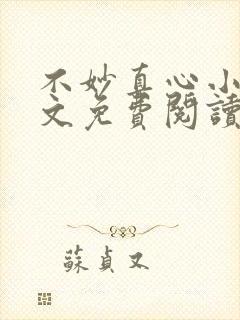 不妙真心小
文免費閱讀
蘇貞又